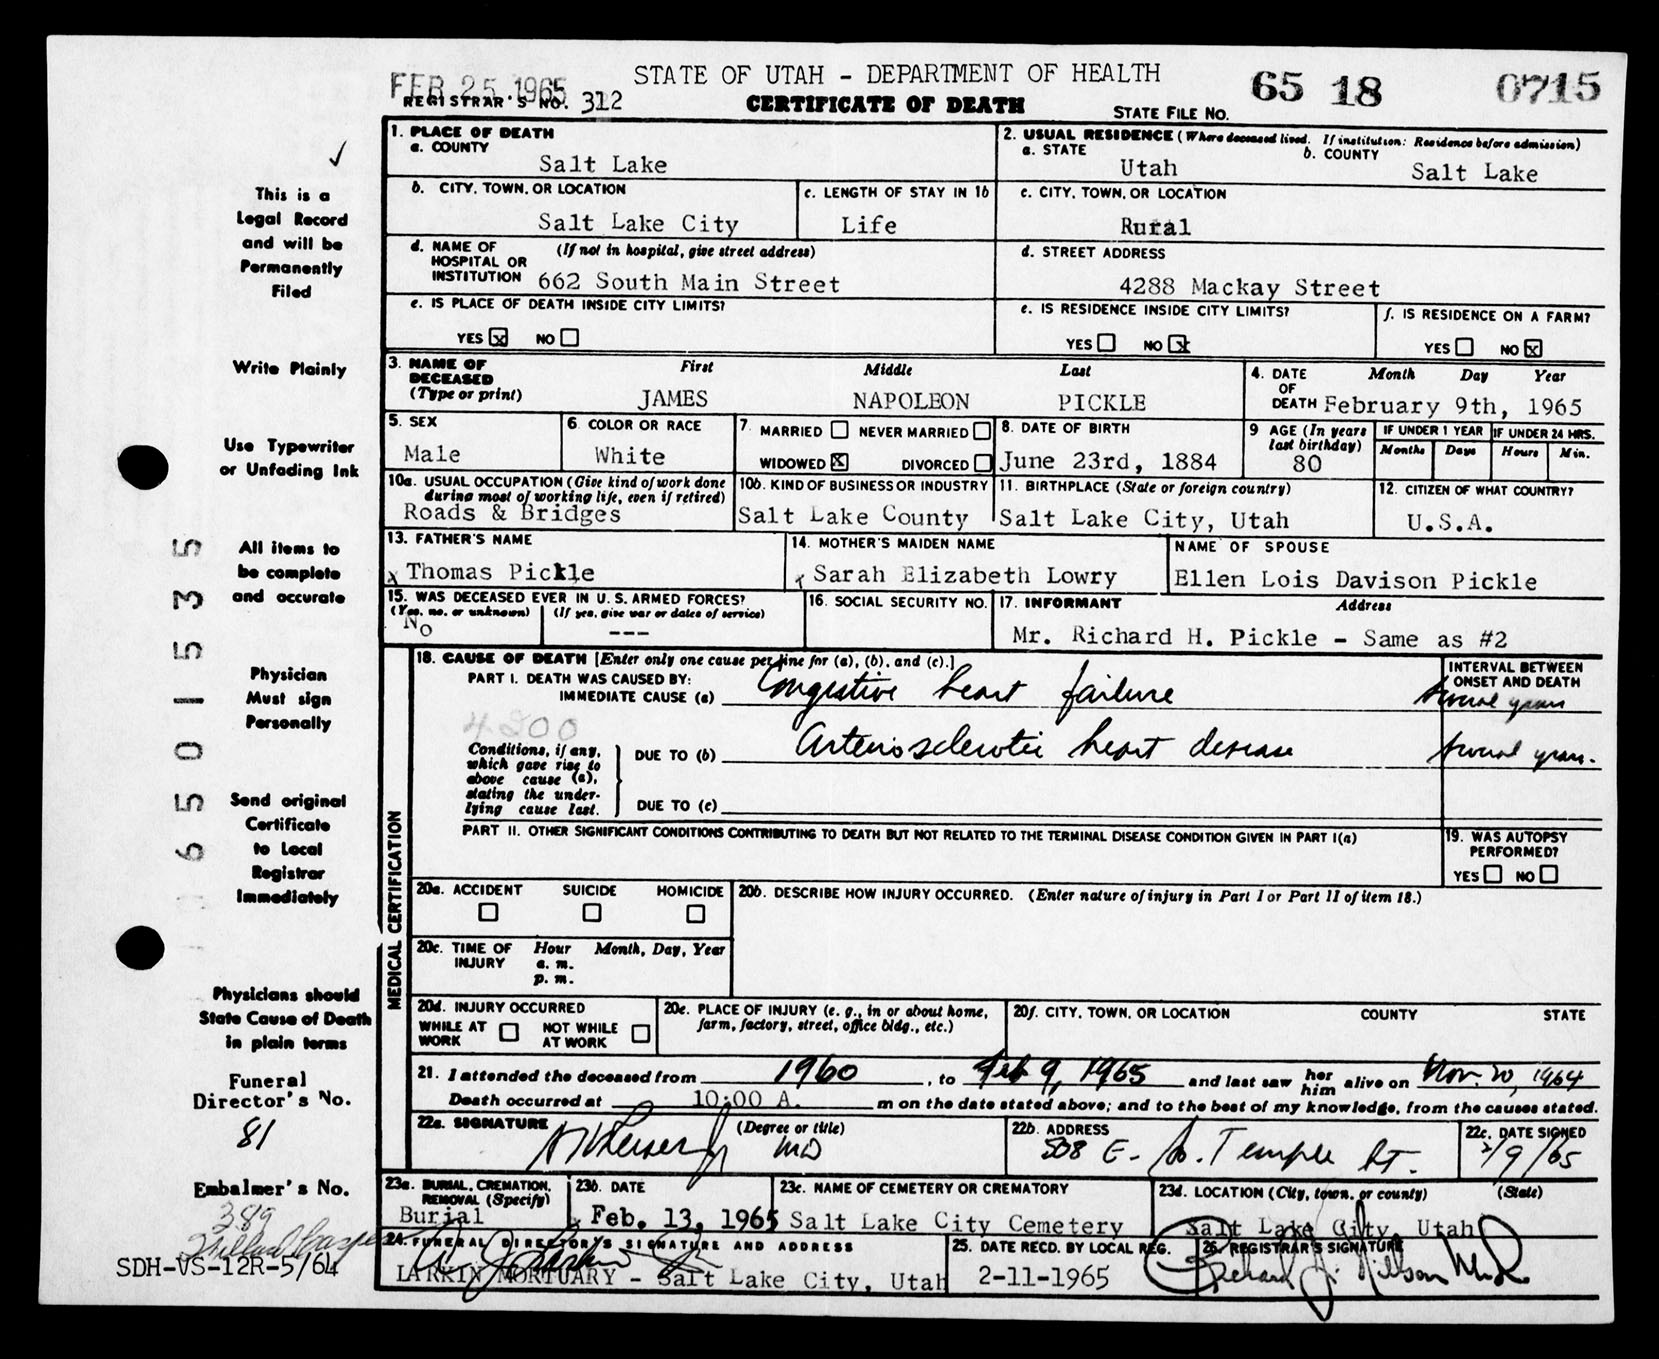 FEB 25 1965
STATE OF UTAH - DEPARTMENT OF HEALTH
65 18 0715
REGISTRAR'S NO. 312
CERTIFICATE OF DEATH
STATE FILE NO.
This is a
Legal Record
and will be
Permanently
Filed
Write Plainly
Use Typewriter
or Unfading Ink
All items to
be complete
and accurate
Physician
Must sign
Personally
Send original
Certificate
to Local
Registrar
Immediately
Physicians should
State Cause of Death
in plain terms
Funeral
Director's No.
81
Embalmer's No.
389
SDH-VS-12R-5/64
65 01535
1. PLACE OF DEATH
a. COUNTY
Salt Lake
2. USUAL RESIDENCE (Where deceased lived. If institution: Residence before admission)
a. STATE b. COUNTY
Utah Salt Lake
b. CITY, TOWN, OR LOCATION
Salt Lake City
c. LENGTH OF STAY IN 1b
Life
c. CITY, TOWN, OR LOCATION
Rural
d. NAME OF HOSPITAL OR INSTITUTION (If not in hospital, give street address)
662 South Main Street
d. STREET ADDRESS
4288 Mackay Street
e. IS PLACE OF DEATH INSIDE CITY LIMITS?
YES x NO
e. IS RESIDENCE INSIDE CITY LIMITS?
YES NO x
f. IS RESIDENCE ON A FARM?
YES NO x
3. NAME OF DECEASED (Type or print)
First Middle Last
JAMES NAPOLEON PICKLE
4. DATE OF DEATH Month Day Year
February 9th, 1965
5. SEX
Male
6. COLOR OR RACE
White
7. MARRIED NEVER MARRIED
WIDOWED x DIVORCED
8. DATE OF BIRTH
June 23rd, 1884
9 AGE (In years last birthday)
80
IF UNDER 1 YEAR
Months Days
IF UNDER 24 HRS.
Hours Min.
10a. USUAL OCCUPATION (Give kind of work done during most of working life, even if retired)
Roads & Bridges
10b. KIND OF BUSINESS OR INDUSTRY
Salt Lake County
11. BIRTHPLACE (State or foreign country)
Salt Lake City, Utah
12. CITIZEN OF WHAT COUNTRY?
U.S.A.
13. FATHER'S NAME
x Thomas Pickle
14. MOTHER'S MAIDEN NAME
x Sarah Elizabeth Lowry
NAME OF SPOUSE
Ellen Lois Davison Pickle
15. WAS DECEASED EVER IN U.S. ARMED FORCES?
(Yes, no. or unknown) (If yes, give war or dates of service)
No ---
16. SOCIAL SECURITY NO.
17. INFORMANT Address
Mr. Richard H. Pickle - Same as #2
MEDICAL CERTIFICATION
18. CAUSE OF DEATH [Enter only one cause per line for (a), (b), and (c).]
INTERVAL BETWEEN ONSET AND DEATH
PART I. DEATH WAS CAUSED BY:
IMMEDIATE CAUSE (a) Congestive heart failure several years
4200
Conditions, if any, which gave rise to above cause (a), stating the underlying cause last.
DUE TO (b) Arteriosclerotic heart disease several years.
DUE TO (c)
PART II. OTHER SIGNIFICANT CONDITIONS CONTRIBUTING TO DEATH BUT NOT RELATED TO THE TERMINAL DISEASE CONDITION GIVEN IN PART I(a)
19. WAS AUTOPSY PERFORMED?
YES NO
20a. ACCIDENT SUICIDE HOMICIDE
20b. DESCRIBE HOW INJURY OCCURRED. (Enter nature of injury in Part I or Part II of item 18.)
20c. TIME OF INJURY Hour Month, Day, Year
a. m.
p. m.
20d. INJURY OCCURRED
WHILE AT WORK NOT WHILE AT WORK
20e. PLACE OF INJURY (e. g., in or about home, farm, factory, street, office bldg., etc.)
20f. CITY, TOWN, OR LOCATION COUNTY STATE
21. I attended the deceased from 1960, to Feb 9, 1965 and last saw her him alive on Nov. 20, 1964
Death occurred at 10:00 A. m on the date stated above; and to the best of my knowledge, from the causes stated.
22a. SIGNATURE (Degree or title)
MD
22b. ADDRESS
508 E. So. Temple St.
22c. DATE SIGNED
2/9/65
23a. BURIAL, CREMATION, REMOVAL (Specify)
Burial
23b. DATE
Feb. 13, 1965
23c. NAME OF CEMETERY OR CREMATORY
Salt Lake City Cemetery
23d. LOCATION (City, town, or county) (State)
Salt Lake City, Utah
24. FUNERAL DIRECTOR'S SIGNATURE AND ADDRESS
LARKIN MORTUARY - Salt Lake City, Utah
25. DATE RECD. BY LOCAL REG.
2-11-1965
26. REGISTRAR'S SIGNATURE
Richard J. Nilson M.D.